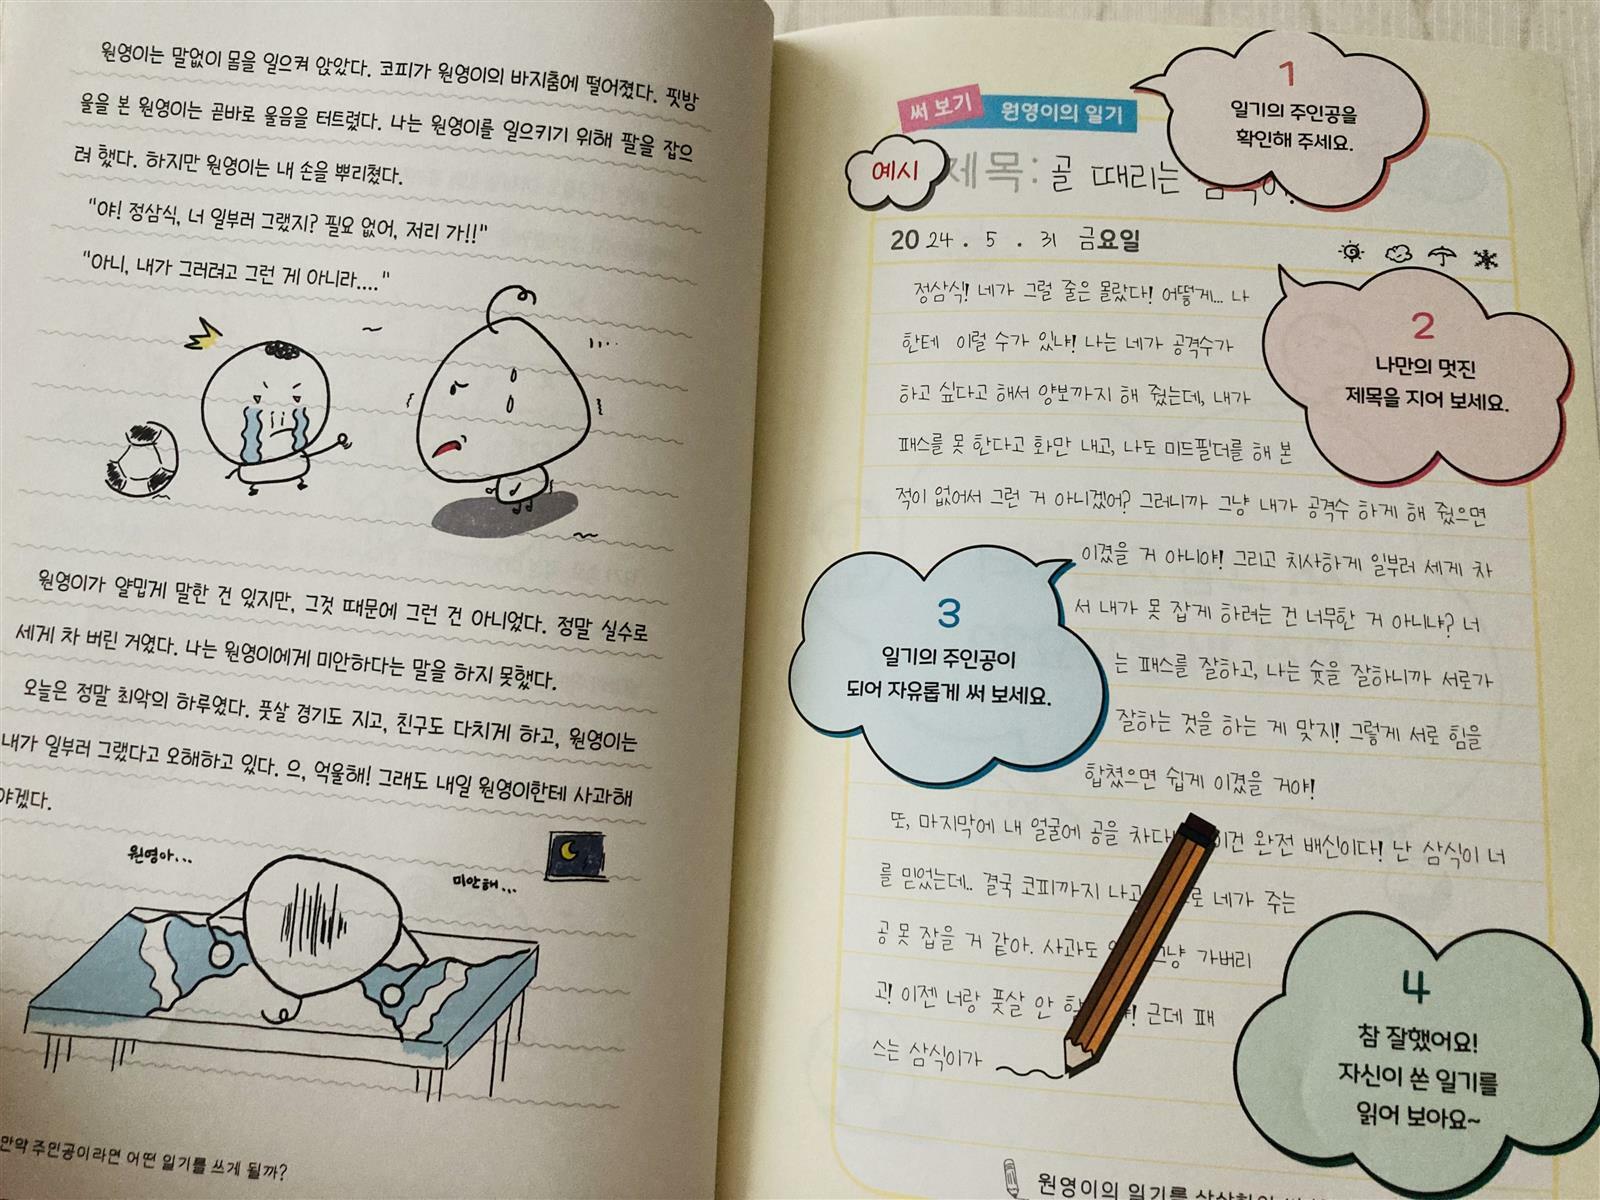 원영이는 말없이 몸을 일으켜 앉았다. 코피가 원영이의 바지춤에 떨어졌다. 핏방
울을 본 원영이는 곧바로 울음을 터트렸다. 나는 원영이를 일으키기 위해 팔을 잡으
려 했다. 하지만 원영이는 내 손을 뿌리쳤다.
"야! 정삼식, 너 일부러 그랬지? 필요 없어, 저리 가!!"
"아니, 내가 그러려고 그런 게 아니라...."
원영이가 얄밉게 말한 건 있지만, 그것 때문에 그런 건 아니었다. 정말 실수로
세게 차 버린 거였다. 나는 원영이에게 미안하다는 말을 하지 못했다.
오늘은 정말 최악의 하루였다. 풋살 경기도 지고, 친구도 다치게 하고, 원영이는
내가 일부러 그랬다고 오해하고 있다. 으, 억울해! 그래도 내일 원영이한테 사과해
야겠다.
원영아...
미안해...
만약 주인공이라면 어떤 일기를 쓰게 될까?
써 보기 원영이의 일기
예시
제목: 골 때리는
2024. 5. 31 금요일
정삼식! 네가 그럴 줄은 몰랐다! 어떻게... 나
한테 이럴 수가 있냐! 나는 네가 공격수가
하고 싶다고 해서 양보까지 해 줬는데, 내가
패스를 못 한다고 화만 내고, 나도 미드필더를 해 본
적이 없어서 그런 거 아니겠어? 그러니까 그냥 내가 공격수 하게 해 줬으면
이겼을 거 아니야! 그리고 치사하게 일부러 세게 차
서 내가 못 잡게 하려는 건 너무한 거 아니냐? 너
는 패스를 잘하고, 나는 슛을 잘하니까 서로가
잘하는 것을 하는 게 맞지! 그렇게 서로 힘을
합쳤으면 쉽게 이겼을 거야!
또, 마지막에 내 얼굴에 공을 차다 이건 완전 배신이다! 난 삼식이 너
를 믿었는데.. 결국 코피까지 나고 네가 주는
공 못 잡을 거 같아. 사과도 그냥 가버리
고! 이젠 너랑 풋살 안 근데 패
스는 삼식이가
1
일기의 주인공을
확인해 주세요.
2
나만의 멋진
제목을 지어 보세요.
3
일기의 주인공이
되어 자유롭게 써 보세요.
4
참 잘했어요!
자신이 쓴 일기를
읽어 보아요~
원영이의 일기를